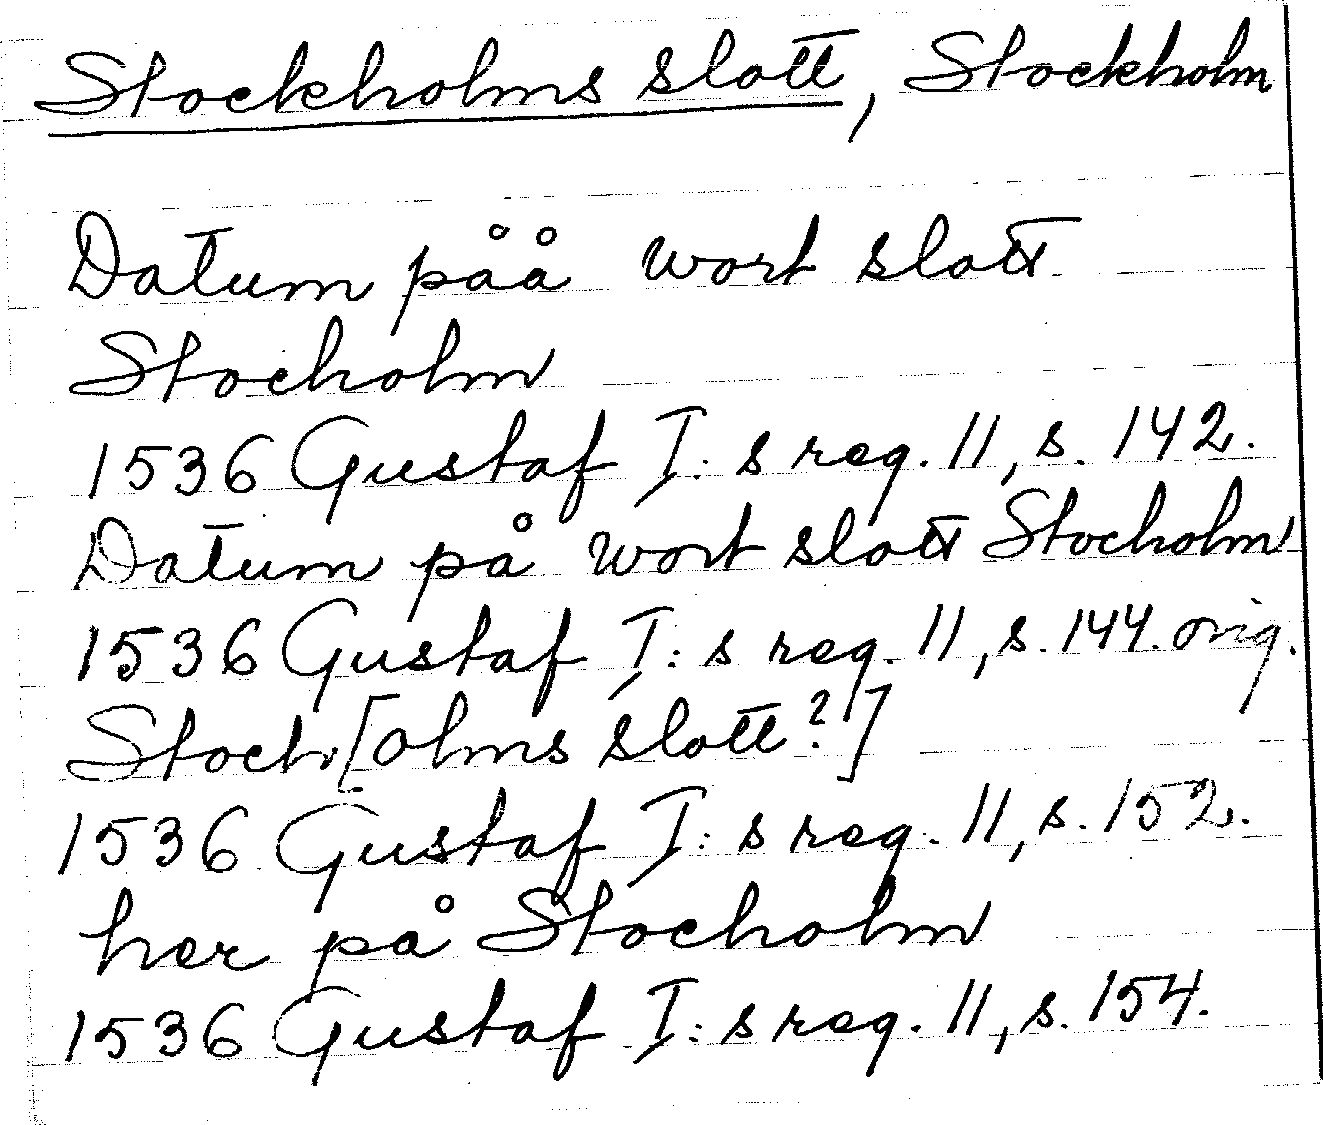 Stockholms slott, Stockholm
Datum påå wort slott
Stocholm
1536 Gustaf I:s reg. 11, s. 142.
Datum på wort slott Stocholm
1536 Gustaf I:s reg. 11, s. 144. orig.
Stoch[olms slott?]
1536 Gustaf I:s reg. 11, s. 152.
her på Stocholm
1536 Gustaf I:s reg. 11, s. 154.